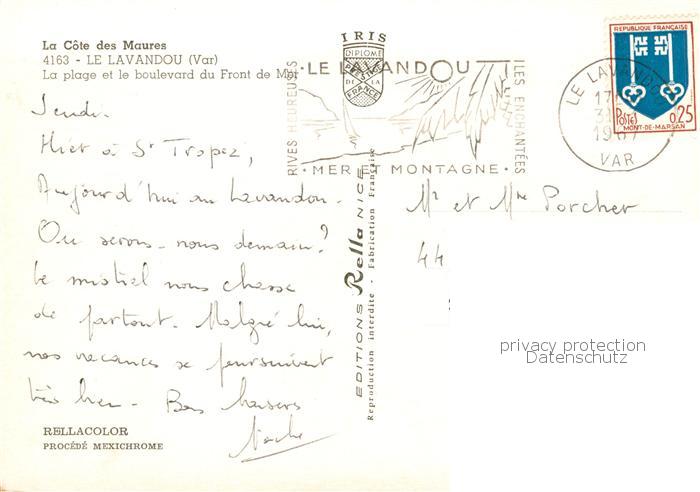 La Côte des Maures
4163 - LE LAVANDOU (Var)
La plage et le boulevard du Front de Mer
Jeudi.
Hier à St Tropez,
Aujourd'hui au Lavandou.
Où serons-nous demain?
Le mistral nous chasse
de partout. Malgré lui,
nos vacances se poursuivent
très bien. Bons baisers
RELLACOLOR
PROCÉDÉ MEXICHROME
IRIS
DIPLOME
PRESTIGE
DE LA
FRANCE
EDITIONS Rella NICE
Reproduction interdite - Fabrication Française
RIVES HEUREUSES
· LE LAVANDOU ·
ILES ENCHANTÉES
· MER ET MONTAGNE ·
LE LAVANDOU
17
VAR
REPUBLIQUE FRANÇAISE
POSTES 0,25
MONT-DE-MARSAN
Mr et Mme Porcher
44
privacy protection
Datenschutz